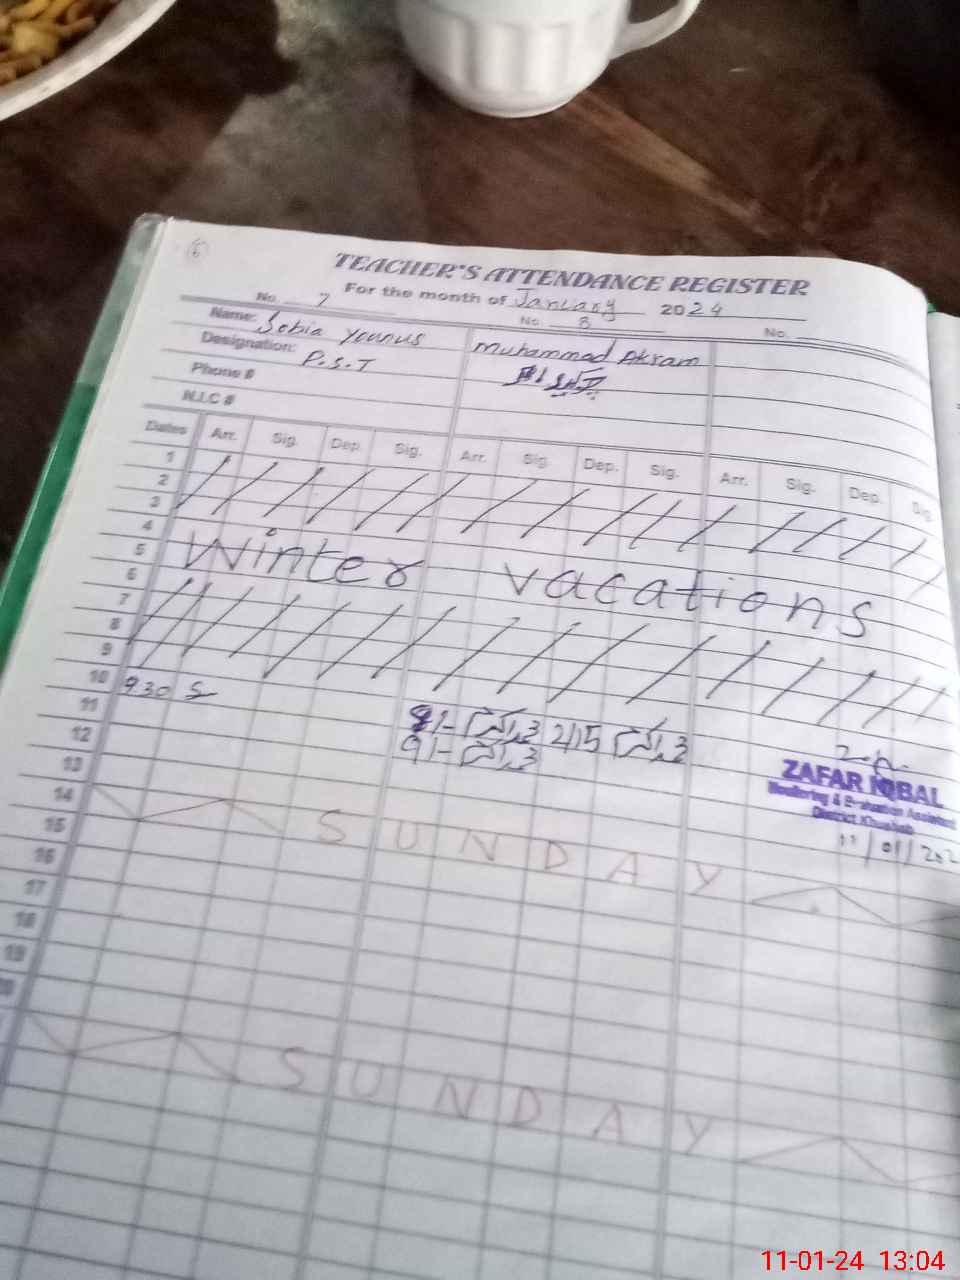 6
TEACHER'S ATTENDANCE REGISTER
For the month of January 2024
No. 7 No. 8 No.
Name: Sobia Younus Muhammad Akram
Designation: P.S.T
Phone #
N.I.C #
Dates Arr. Sig. Dep. Sig. Arr. Sig. Dep. Sig. Arr. Sig. Dep. Sig.
1
2
3
4
5 Winter vacations
6
7
8
9
10 9.30
11 2/15
12
13
14 SUNDAY
15
16
17
18
19
20
SUNDAY
ZAFAR IQBAL
Monitoring & Evaluation Assistant
District Khushab
11/01/202
11-01-24 13:04